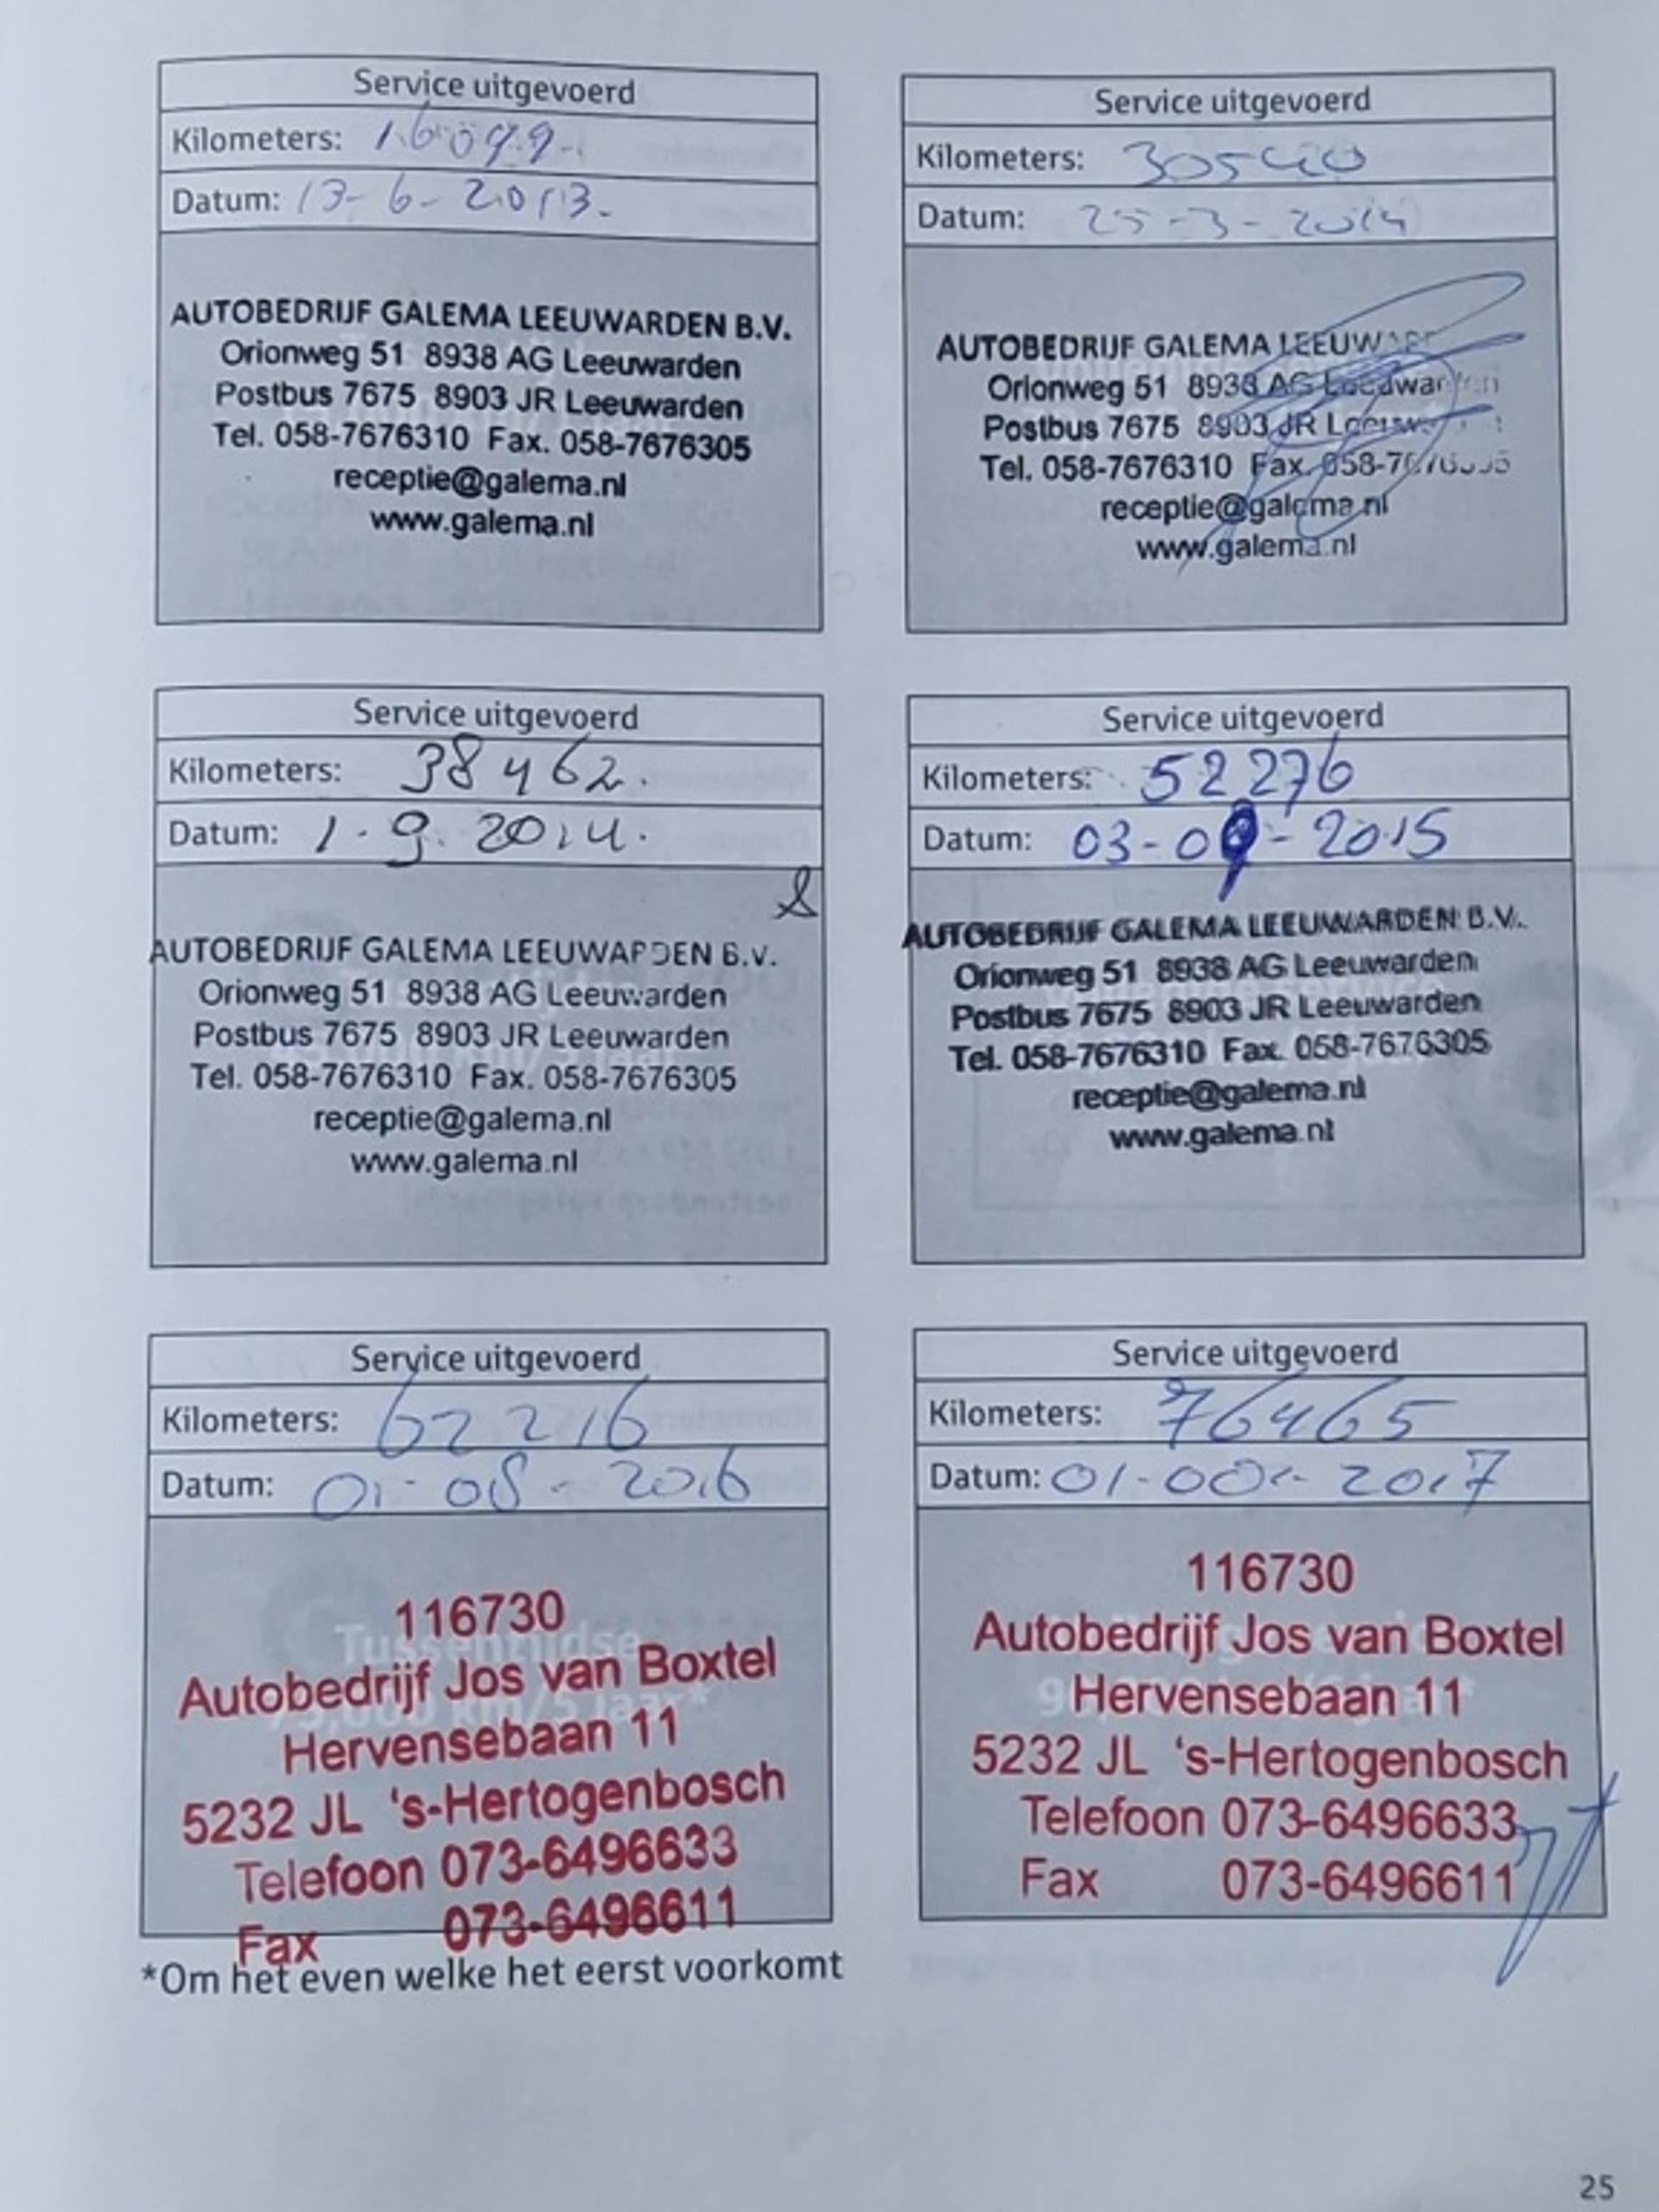 Service uitgevoerd
Kilometers: 16099
Datum: 13-6-2013.
AUTOBEDRIJF GALEMA LEEUWARDEN B.V.
Orionweg 51 8938 AG Leeuwarden
Postbus 7675 8903 JR Leeuwarden
Tel. 058-7676310 Fax. 058-7676305
receptie@galema.nl
www.galema.nl
Service uitgevoerd
Kilometers: 30540
Datum: 25-3-2014
AUTOBEDRIJF GALEMA
Orionweg 51 8938 AG Leeuwarden
Postbus 7675 8903 JR
Tel. 058-7676310 Fax.
receptie@galema.nl
www.galema.nl
Service uitgevoerd
Kilometers: 38462.
Datum: 1.9.2014.
AUTOBEDRIJF GALEMA LEEUWARDEN B.V.
Orionweg 51 8938 AG Leeuwarden
Postbus 7675 8903 JR Leeuwarden
Tel. 058-7676310 Fax. 058-7676305
receptie@galema.nl
www.galema.nl
Service uitgevoerd
Kilometers: 52276
Datum: 03-09-2015
AUTOBEDRIJF GALEMA LEEUWARDEN B.V.
Orionweg 51 8938 AG Leeuwarden
Postbus 7675 8903 JR Leeuwarden
Tel. 058-7676310 Fax. 058-7676305
receptie@galema.nl
www.galema.nl
Service uitgevoerd
Kilometers: 62216
Datum: 01-08-2016
116730
Autobedrijf Jos van Boxtel
Hervensebaan 11
5232 JL 's-Hertogenbosch
Telefoon 073-6496633
Fax 073-6496611
Service uitgevoerd
Kilometers: 76465
Datum:
116730
Autobedrijf Jos van Boxtel
Hervensebaan 11
5232 JL 's-Hertogenbosch
Telefoon 073-6496633
Fax 073-6496611
*Om het even welke het eerst voorkomt
25